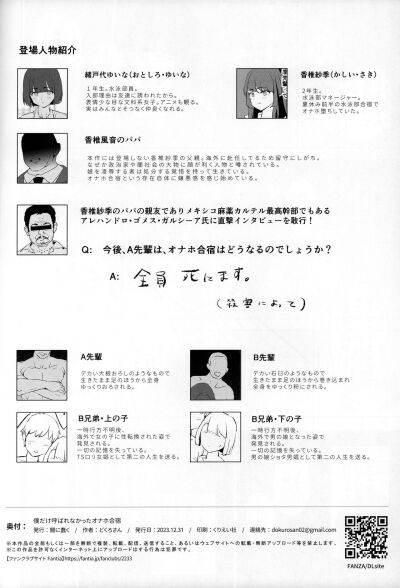 登場人物紹介
緒戸代ゆいな(おとしろ・ゆいな)
1年生。水泳部員。
入部理由は友達に誘われたから。
表情少な目な文科系女子。アニメも観る。
実はみんなとそうなく仲良くなれる。
香椎紗季(かしい・さき)
2年生。
水泳部マネージャー。
夏休み前半の水泳部合宿で
オナホ堕ちしていた。
香椎風音のパパ
本作には登場しない香椎紗季の父親。海外に赴任してるため留守にしがち。
なぜか政治家や闇社会の大物に顔が利く人物と噂されている。
娘を凌辱する者は処分する覚悟を持って生きている。
オナホ合宿という存在自体に嫌悪感を感じ始めている。
香椎紗季のパパの親友でありメキシコ麻薬カルテル最高幹部でもある
アレハンドロ・ゴメス・ガルシーア氏に直撃インタビューを敢行!
Q: 今後、A先輩は、オナホ合宿はどうなるのでしょうか?
A: 全員 死にます。
A先輩
デカい大根おろしのようなもので
生きたまま足のほうから全身
ゆっくりおろされる。
B先輩
デカい石臼のようなもので
生きたまま足のほうから巻き込まれ
全身をゆっくり粉にされる。
B兄弟・上の子
一時行方不明後、
海外で女の子に性転換された姿で
発見される。
一切の記憶を失っている。
TSロリ女娼として第二の人生を送る。
B兄弟・下の子
一時行方不明後、
海外で男の娘となった姿で
発見される。
一切の記憶を失っている。
男の娘ショタ男娼として第二の人生を送る。
奥付: 僕だけ呼ばれなかったオナホ合宿
発行:闇に蠢く / 作者:どくろさん / 発行日:2023.12.31 / 印刷:くりえい社 / 連絡先:dokurosan02@gmail.com
※本作品の全部もしくは一部を無断で複製、転載、配信、送信すること、あるいはウェブサイトへの転載・無断アップロード等を禁止します。
※この作品を許可なくインターネット上にアップロードはする行為は犯罪です。
【ファンクラブサイト Fantia】https://fantia.jp/fanclubs/2233
FANZA/DLsite